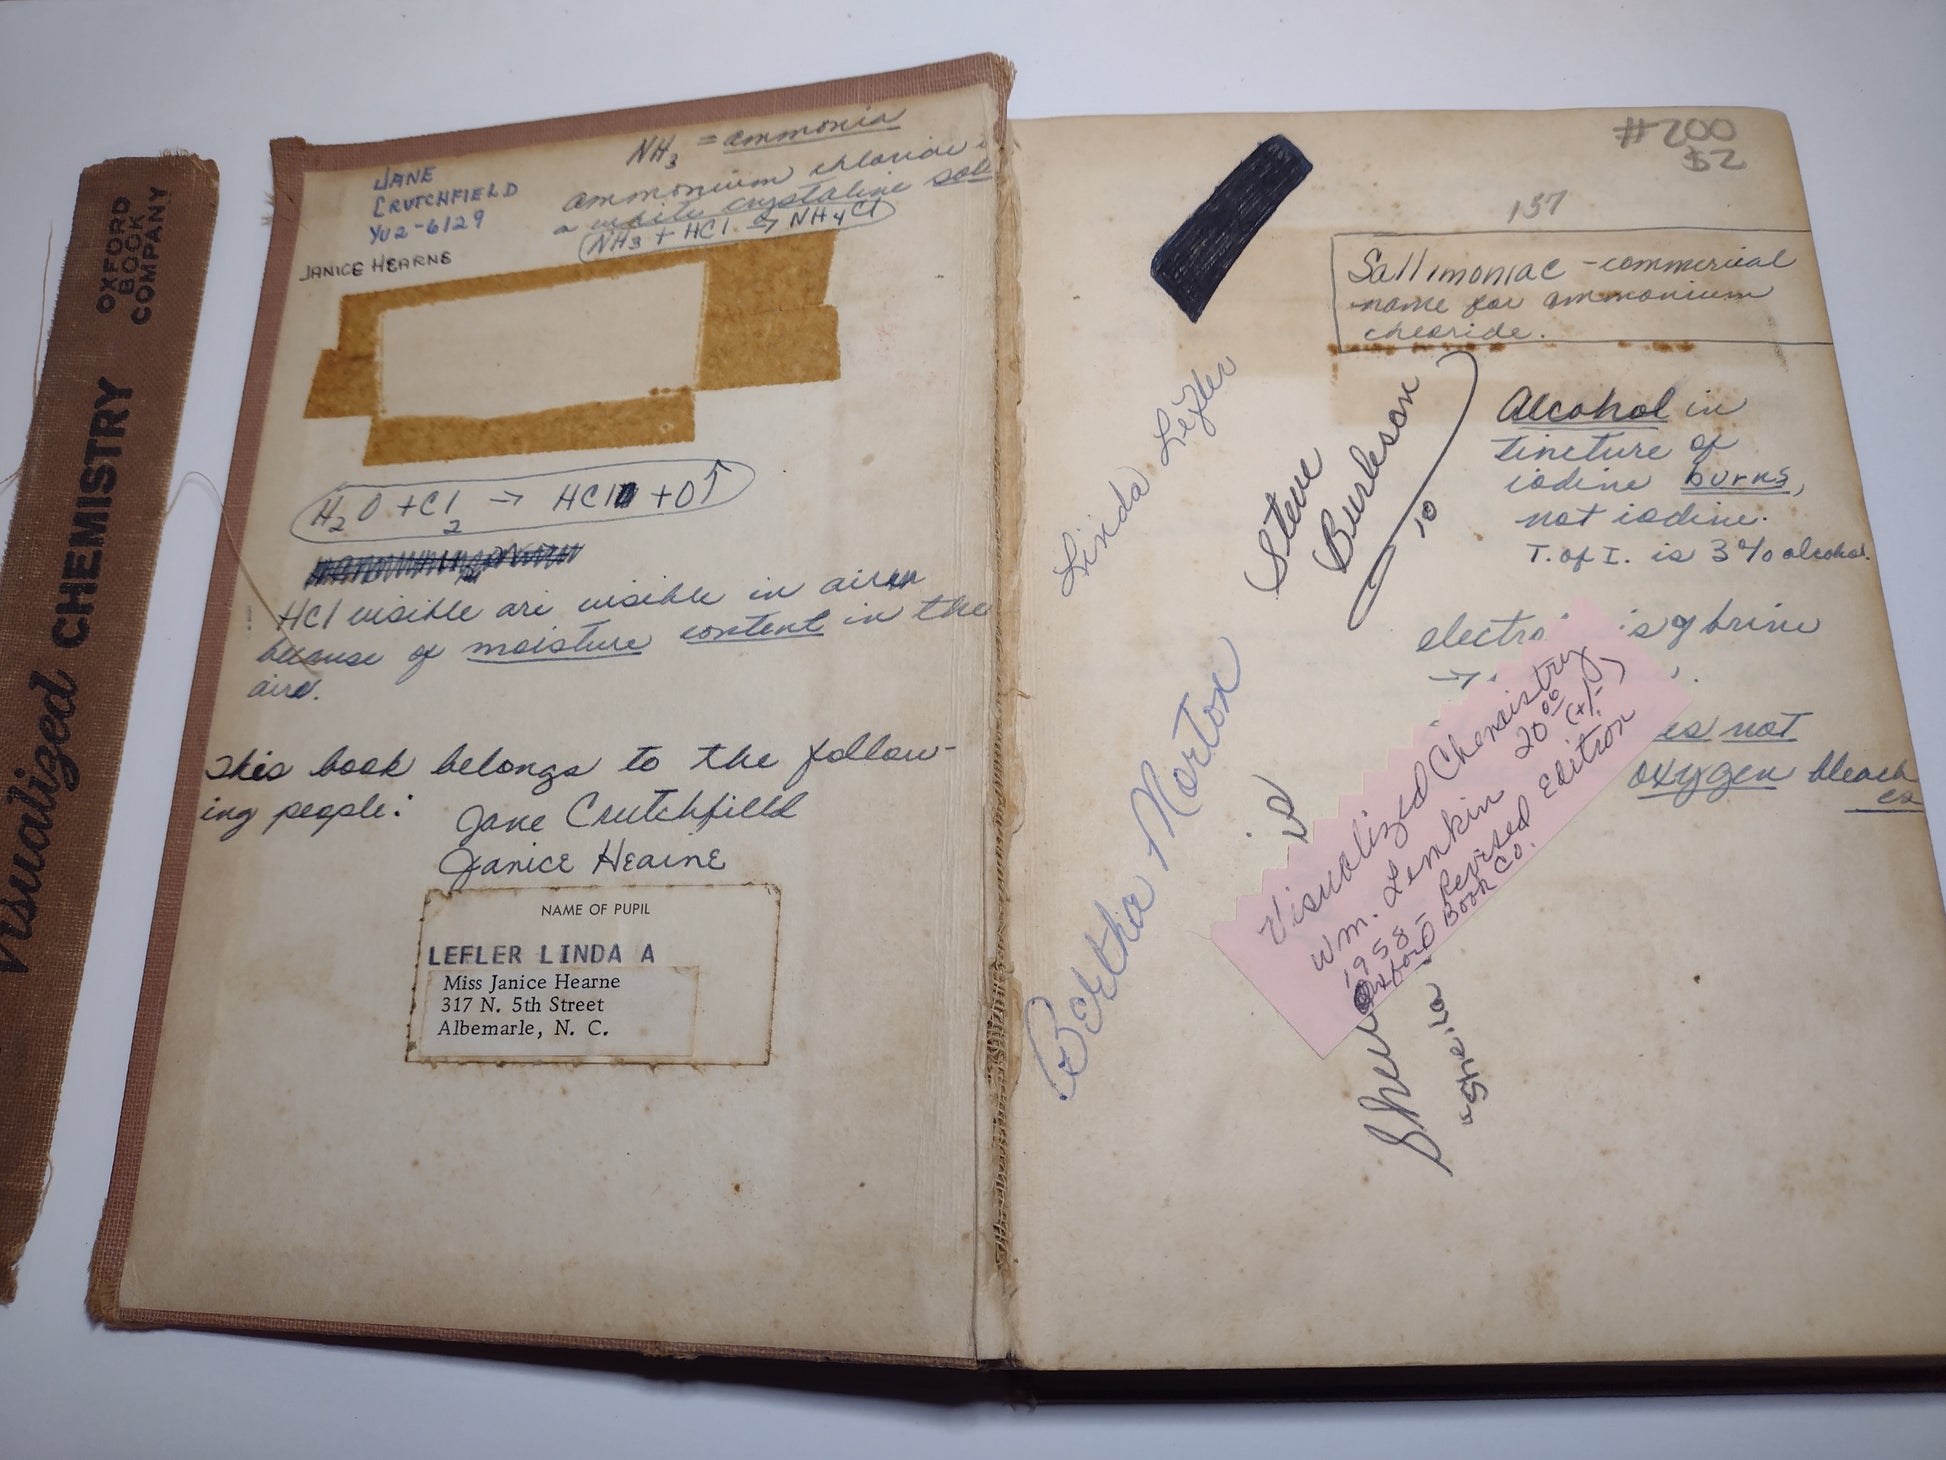 Visualized CHEMISTRY
OXFORD
BOOK
COMPANY
NH3 = ammonia
ammonium chloride
a white crystaline
NH3 + HCl → NH4Cl
JANE
CRUTCHFIELD
YU2-6129
JANICE HEARNE
H2O + Cl2 → HCl + O↑
HCl visible are visible in air
because of moisture content in the
air.
This book belongs to the follow-
ing people:
Jane Crutchfield
Janice Hearne
NAME OF PUPIL
LEFLER LINDA A
Miss Janice Hearne
317 N. 5th Street
Albemarle, N. C.
#200
$2
137
Sallimoniac - commerical
name for ammonium
chloride.
Linda Lefler
Steve
Burleson
10
Alcohol in
tincture of
iodine burns,
not iodine.
T. of I. is 3% alcohol.
of brine
not
oxygen bleach
es
Bertha Morton
Visualized Chemistry
Wm. Lemkin 20.00 (+/-)
1958 - Revised Edition
Oxford Book Co.
"Sheila